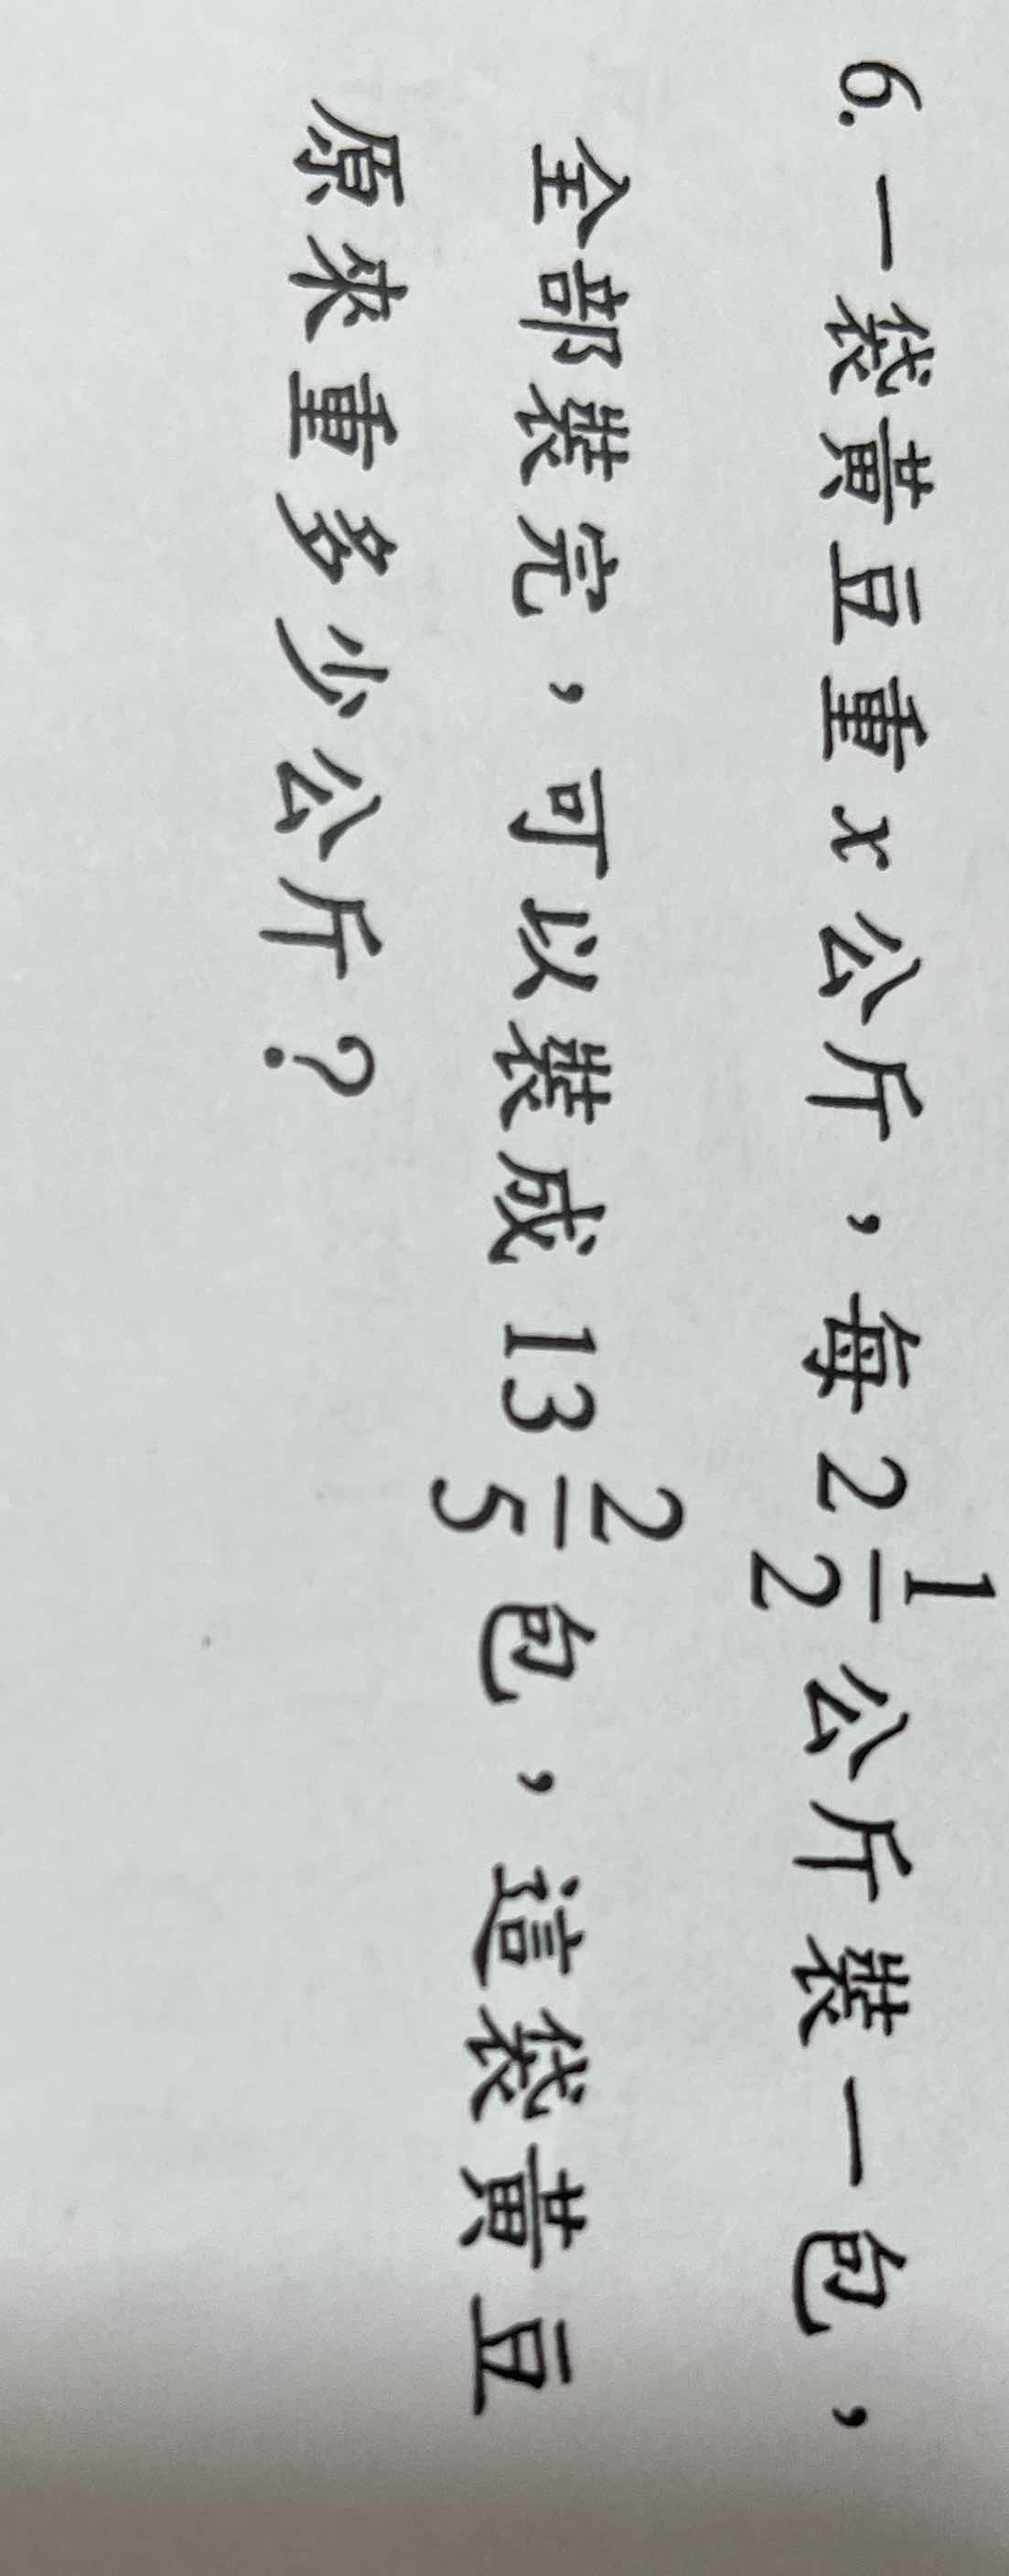 6. 一袋黃豆重 x 公斤，每 2 1/2 公斤裝一包，
全部裝完，可以裝成 13 2/5 包，這袋黃豆
原來重多少公斤？